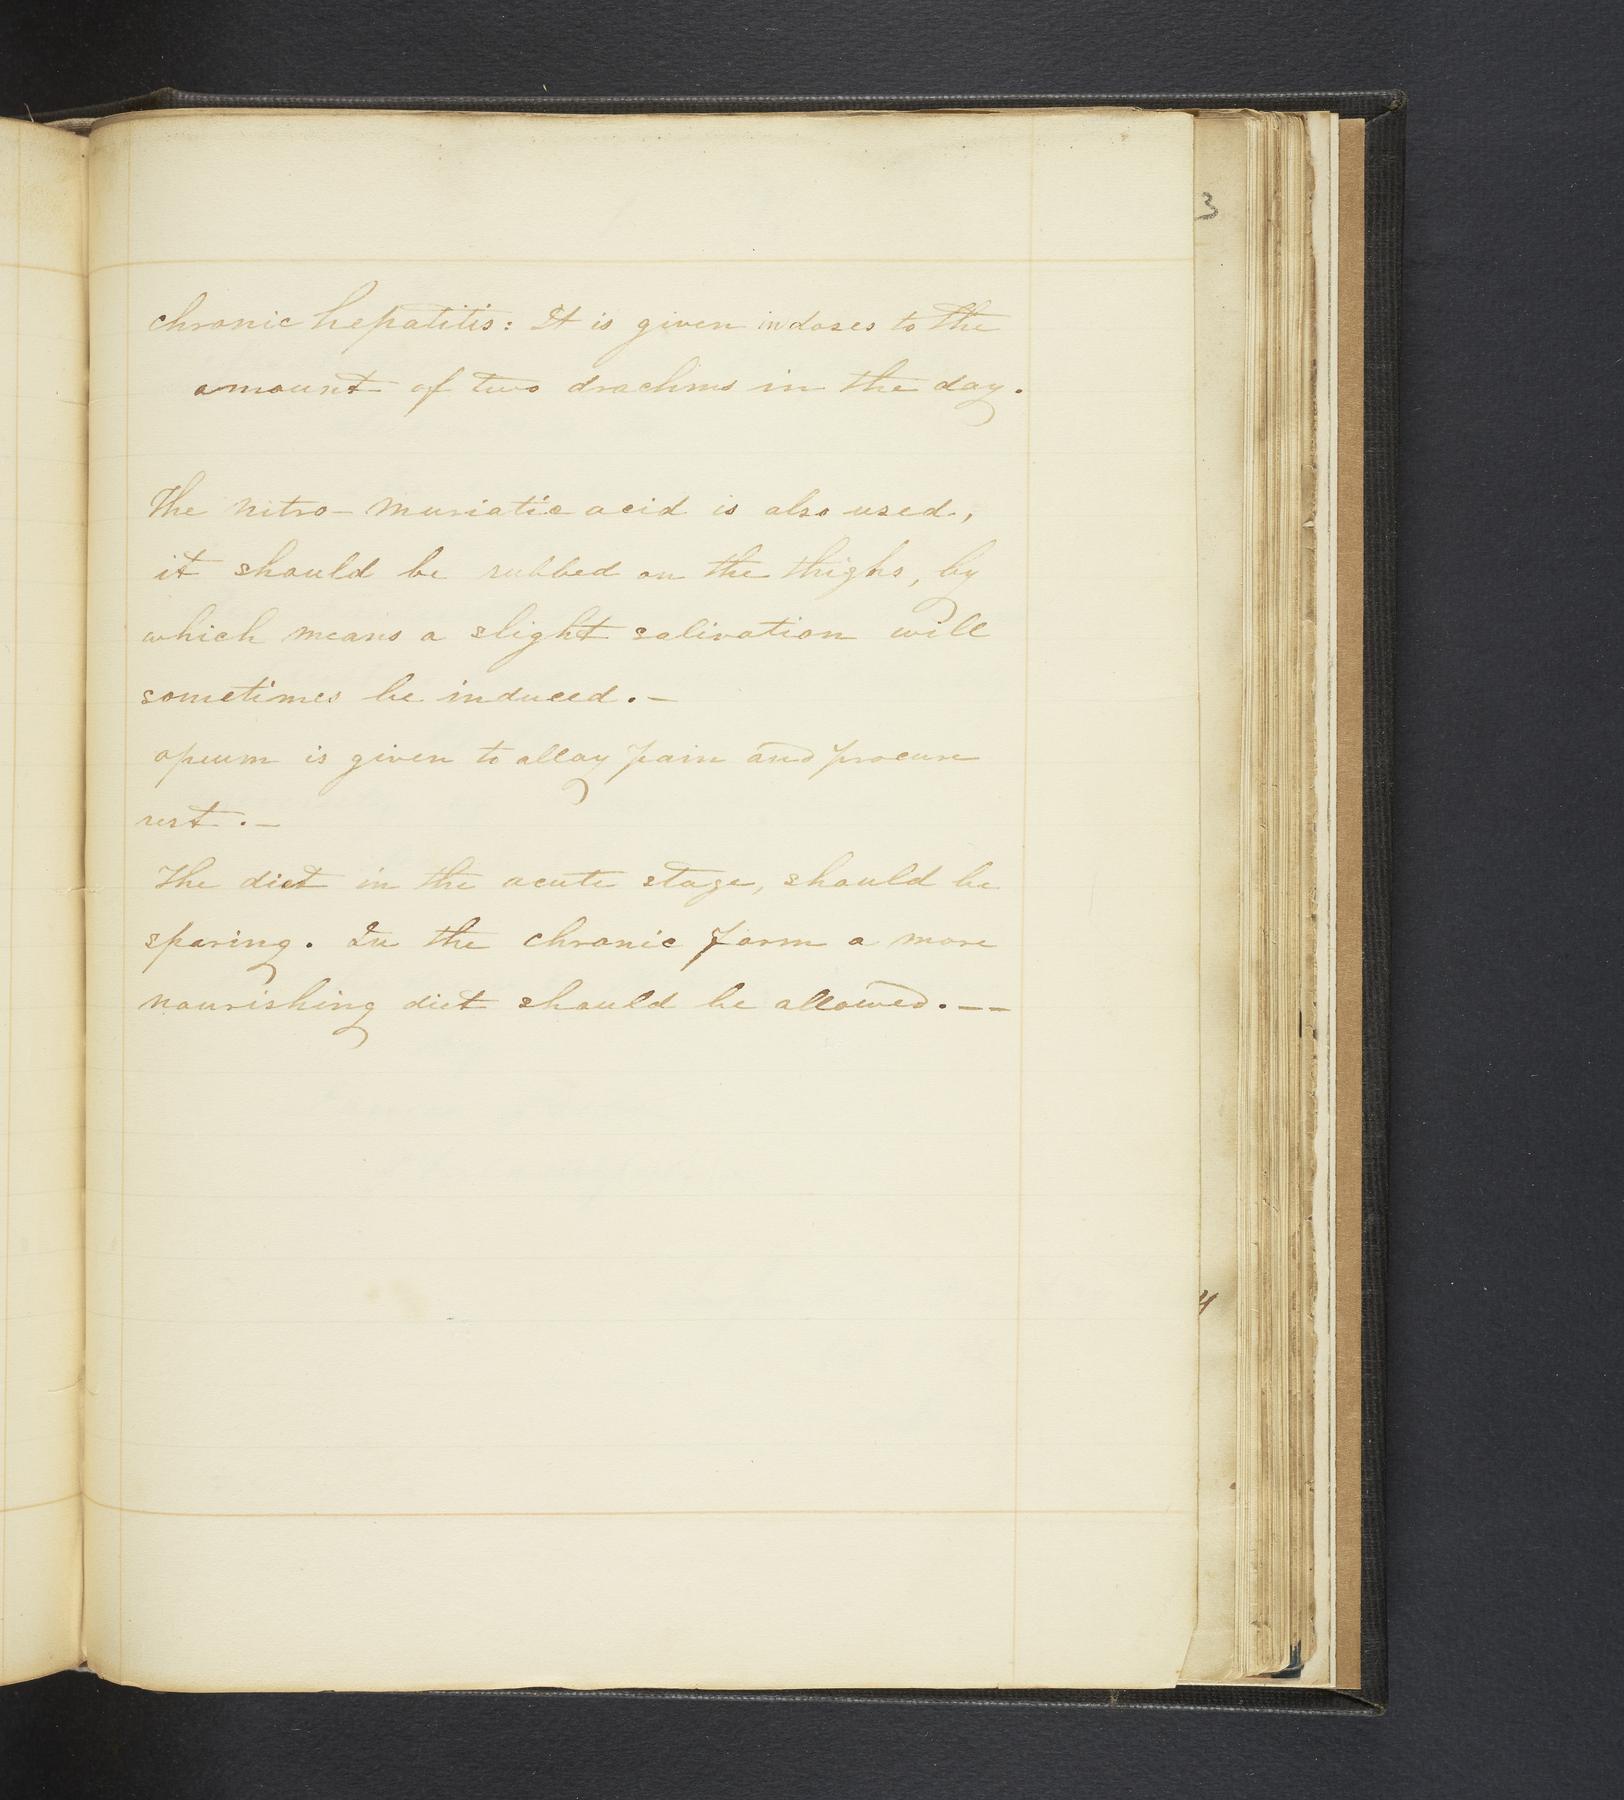 3
chronic hepatitis: It is given in doses to the
amount of two drachms in the day.
The nitro-muriatic acid is also used,
it should be rubbed on the thighs, by
which means a slight salivation will
sometimes be induced.—
opeum is given to allay pain and procure
rest.—
The diet in the acute stage, should be
sparing. In the chronic form a more
nourishing diet should be allowed.——